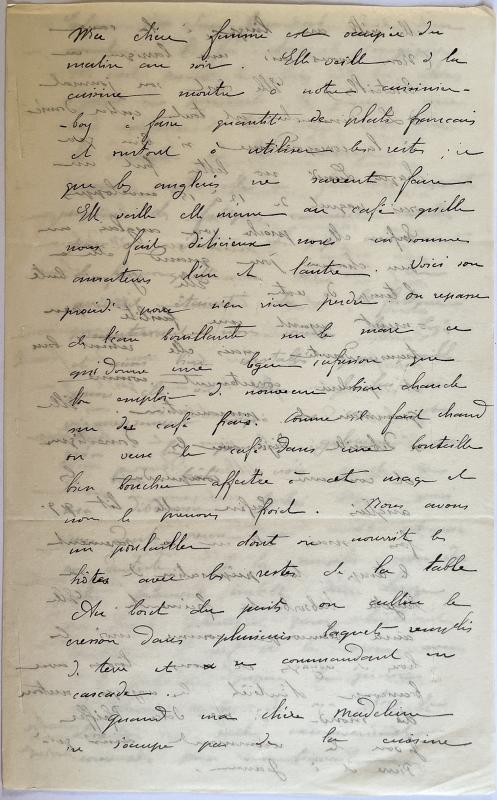 Ma chère femme est occupée du
matin au soir. Elle veille à la
cuisine montre à notre cuisinier-
-boy à faire quantité de plats français
et surtout à utiliser les restes; ce
que les anglais ne savent faire
Elle veille elle même au café qu'elle
nous fait délicieux nous en sommes
amateurs l'un et l'autre. Voici son
procédé pour n'en rien perdre on repasse
de l'eau bouillante sur le marc ce
qui donne une légère infusion que
l'on emploie de nouveau bien chaude
sur du café frais. Comme il fait chaud
on verse le café dans une bouteille
bien bouchée affectée à cet usage et
nous le prenons froid. Nous avons
un poulailler dont on nourrit les
hôtes avec les restes de la table
Au bord du puits on cultive le
cresson dans plusieurs baquets remplis
de terre et se commandant en
cascade.
quand ma chère Madeleine
ne s'occupe pas de la cuisine